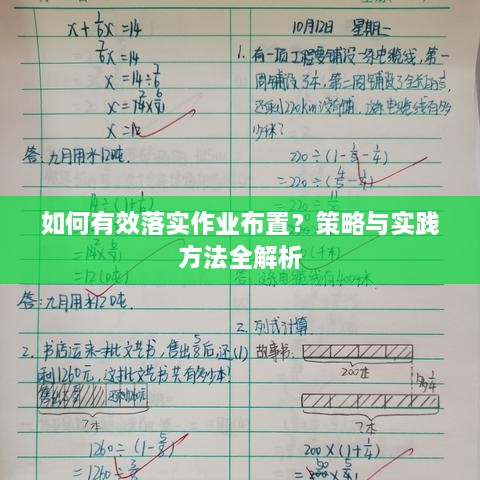 x + 1/6x = 14
7/6x = 14
x = 14 ÷ 7/6
x = 14 × 6/7
x = 12
答:九月用水12吨.
14 ÷ (1+1/6)
= 12(吨)
答:九月用水12吨.
2. 书店运来一批文艺书,售出5/8后,还
剩1260元,这批文艺书共有多少本?
售出5/8
?本
1260 ÷ (1-5/8)
= 1260 ÷ 3/8
10月12日 星期一
1. 有一项工程要铺设一条电缆线,第一
周铺设了1/5,第二周铺设了全长的1/4,
还剩220km没有铺,这条电缆线有多少
千米?
220 ÷ (1-1/5-1/4)
= 220 ÷ (4/5-1/4)
如何有效落实作业布置?策略与实践
方法全解析
2. 列式计算.
(1)
故事书:
200本
多1/4
?本
200 × (1+1/4)